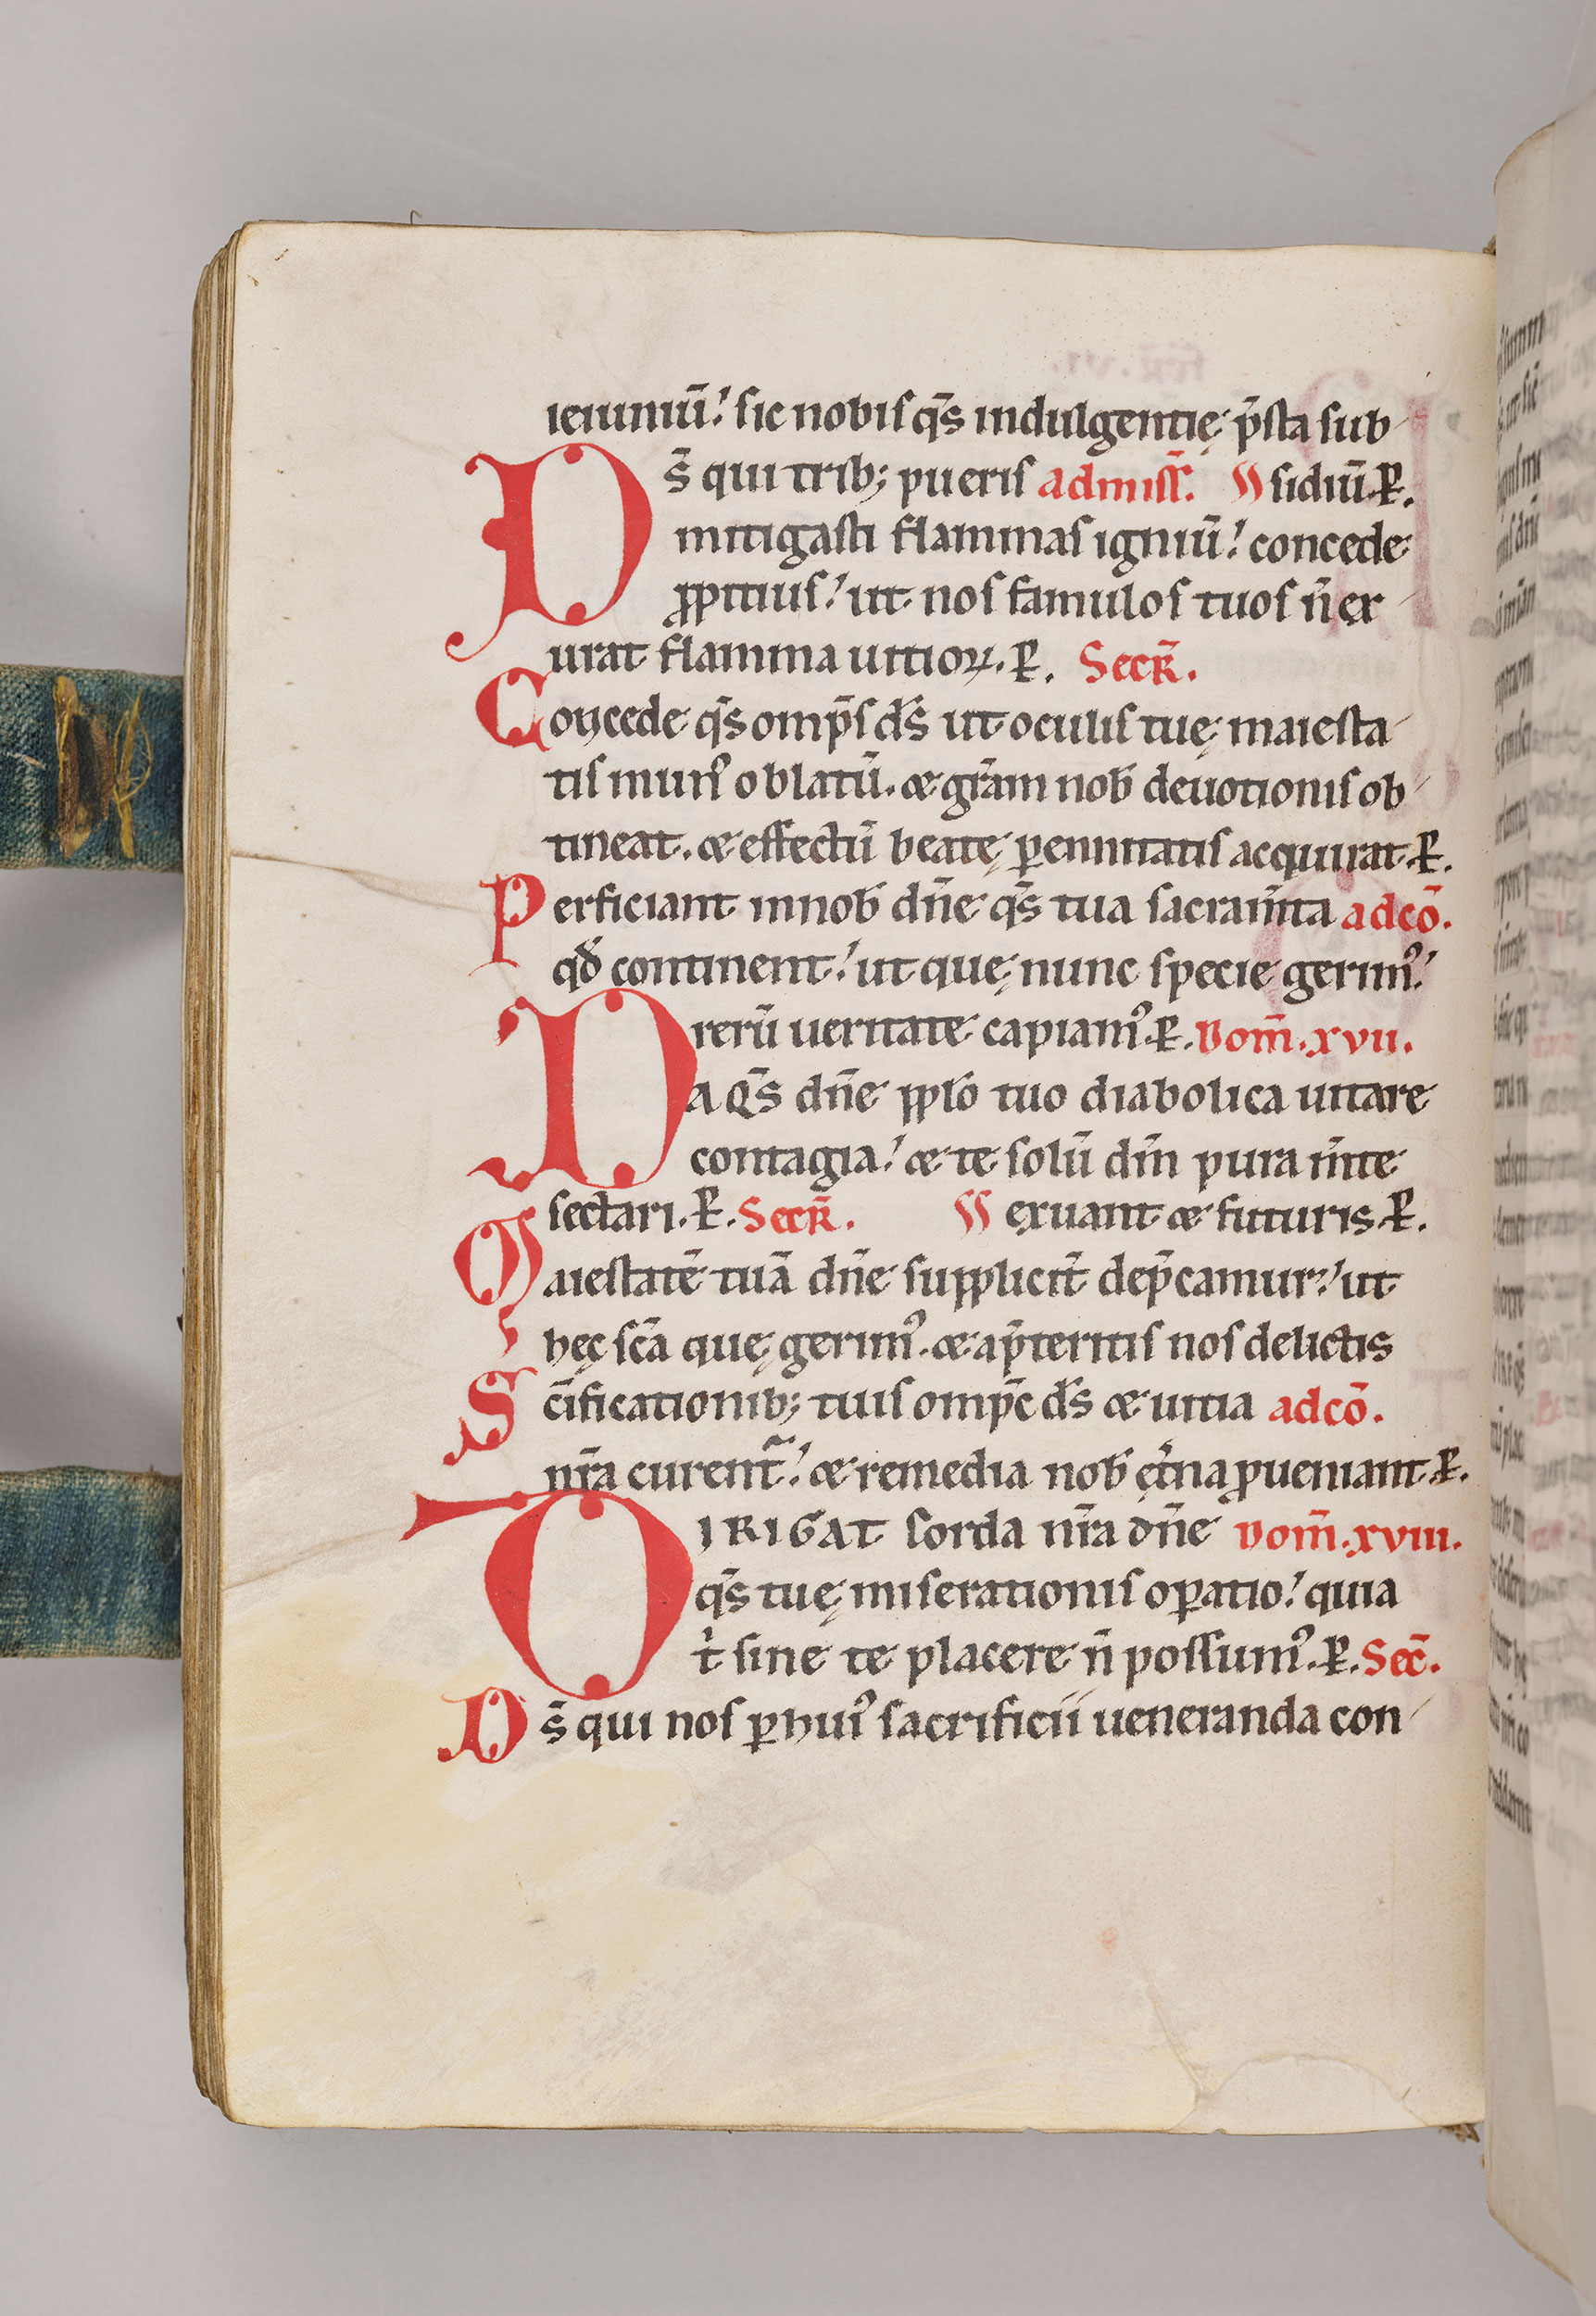 ieiuniū! sic nobis q̄s indulgentię p̄sta sub-
D s̄ qui trib; pueris admiss̄. sidiū. P̄.
mitigasti flammas igniū! concede
ꝓpitius! ut nos famulos tuos n̄ ex-
urat flamma uitioꝝ. P̄. Secr̄.
Concede q̄s omp̄s ds̄ ut oculis tuę maiesta-
tis mun᾽ oblatū. & gr̄am nob̄ deuotionis ob-
tineat. & effectū beatę ꝑennitatis acquirat. P̄.
Perficiant in nob̄ dn̄e q̄s tua sacram̄ta ad cō.
qd̄ continent! ut quę nunc specie gerim᾽!
rerū ueritate capiam᾽. P̄. Dom̄. xvii.
DA Q̄S dn̄e pplo̅ tuo diabolica uitare
contagia! & te solū dn̄m pura m̄te
sectari. P̄. Secr̄. exuant & futuris. P̄.
Maiestatē tuā dn̄e supplicit̄ dep̄camur! ut
hęc sc̄a quę gerim᾽. & a p̄teritis nos delictis
Sc̄ificationib; tuis omp̄c ds̄ & uitia ad cō.
nr̄a curent᷑! & remedia nob̄ ęt̄na ꝓueniant. P̄.
DIRIGAT corda nr̄a dn̄e Dom̄. xviii.
q̄s tuę miserationis oꝑatio! quia
t᾽ sine te placere n̄ possum᾽. P̄. Sec̄.
Ds̄ qui nos ꝑ hui᾽ sacrificii ueneranda con-